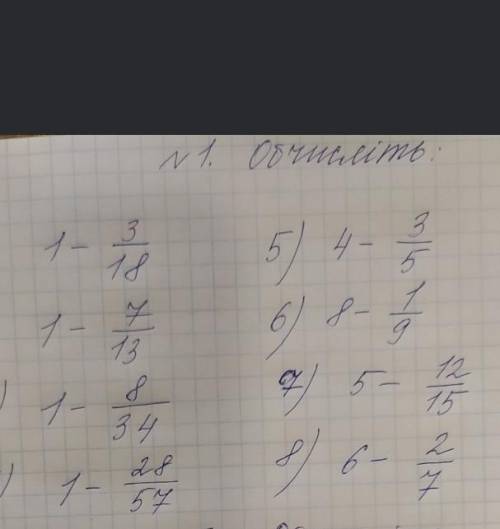 №1. Обчисліть:
1 - 3/18
1 - 7/13
) 1 - 8/34
) 1 - 28/57
5) 4 - 3/5
6) 8 - 1/9
7) 5 - 12/15
8) 6 - 2/7